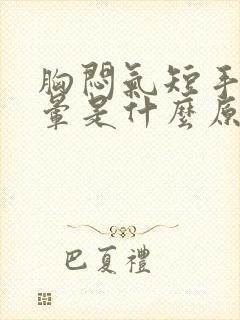 胸悶氣短手
暈是什麼原
巴夏禮